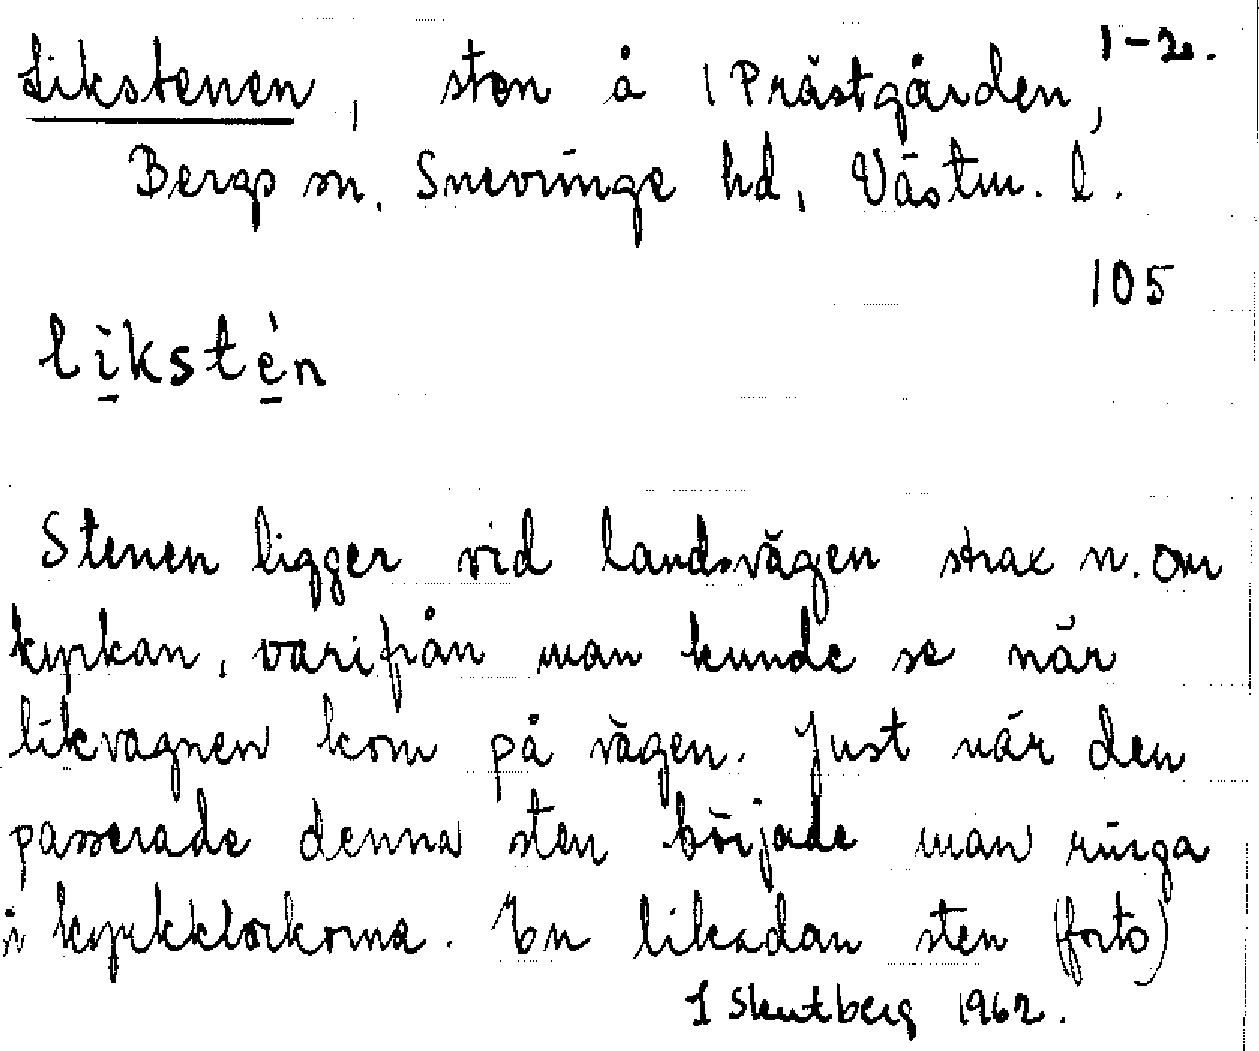 1-2.
Likstenen, sten å 1 Prästgården,
Bergs sn. Snevringe hd, Västm. l.
105
līkstèn
Stenen ligger vid landsvägen strax n. om
kyrkan, varifrån man kunde se när
likvagnen kom på vägen. Just när den
passerade denna sten började man ringa
i kyrkklockorna. En likadan sten (forts)
I Skutberg 1962.